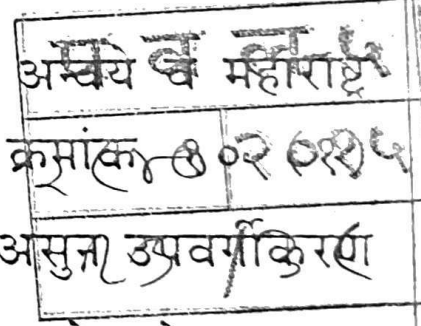 अन्वये व महाराष्ट्र
क्रमांक
असुन उपवर्गीकरण